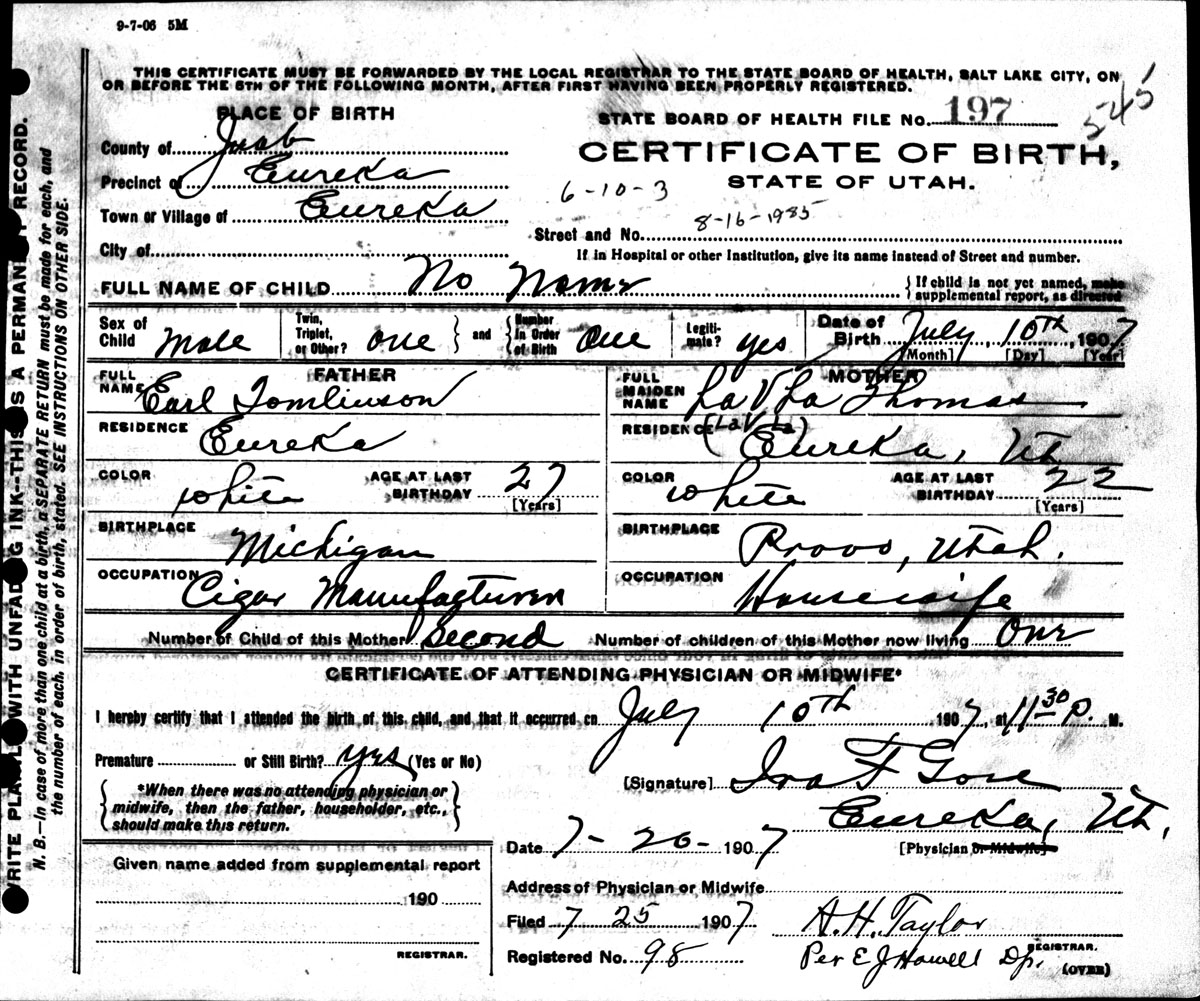 9-7-06 5M
THIS CERTIFICATE MUST BE FORWARDED BY THE LOCAL REGISTRAR TO THE STATE BOARD OF HEALTH, SALT LAKE CITY, ON
OR BEFORE THE 5TH OF THE FOLLOWING MONTH, AFTER FIRST HAVING BEEN PROPERLY REGISTERED.
545
PLACE OF BIRTH
STATE BOARD OF HEALTH FILE No. 197
County of Juab
CERTIFICATE OF BIRTH,
Precinct of Eureka
STATE OF UTAH.
6-10-3
Town or Village of Eureka
8-16-1985
Street and No.
City of
If in Hospital or other Institution, give its name instead of Street and number.
FULL NAME OF CHILD No Name
If child is not yet named, make
supplemental report, as directed
Sex of Child Male Twin, Triplet, or Other? one and Number in Order of Birth One Legitimate? yes Date of Birth July 10th, 1907
[Month] [Day] [Year]
FATHER
MOTHER
FULL NAME Earl Tomlinson
FULL MAIDEN NAME La V La Thomas
RESIDENCE Eureka
RESIDENCE (La V La) Eureka, Ut
COLOR white AGE AT LAST BIRTHDAY 27 [Years]
COLOR white AGE AT LAST BIRTHDAY 22 [Years]
BIRTHPLACE Michigan
BIRTHPLACE Provo, Utah.
OCCUPATION Cigar Manufacturer
OCCUPATION Housewife
Number of Child of this Mother Second Number of children of this Mother now living One
CERTIFICATE OF ATTENDING PHYSICIAN OR MIDWIFE*
I hereby certify that I attended the birth of this child, and that it occurred on July 10th 1907, at 11 30 P. M.
Premature or Still Birth? yes (Yes or No)
[Signature] Ira F Gose
*When there was no attending physician or
midwife, then the father, householder, etc.,
should make this return.
Eureka, Ut.
[Physician or Midwife]
Date 7-20-1907
Given name added from supplemental report
190
REGISTRAR.
Address of Physician or Midwife
Filed 7 25 1907
A. H. Taylor
REGISTRAR.
Registered No. 98
Per E J Howell Dp.
(OVER)
WRITE PLAINLY WITH UNFADING INK--THIS IS A PERMANENT RECORD.
N. B.—In case of more than one child at a birth, a SEPARATE RETURN must be made for each, and
the number of each, in order of birth, stated. SEE INSTRUCTIONS ON OTHER SIDE.